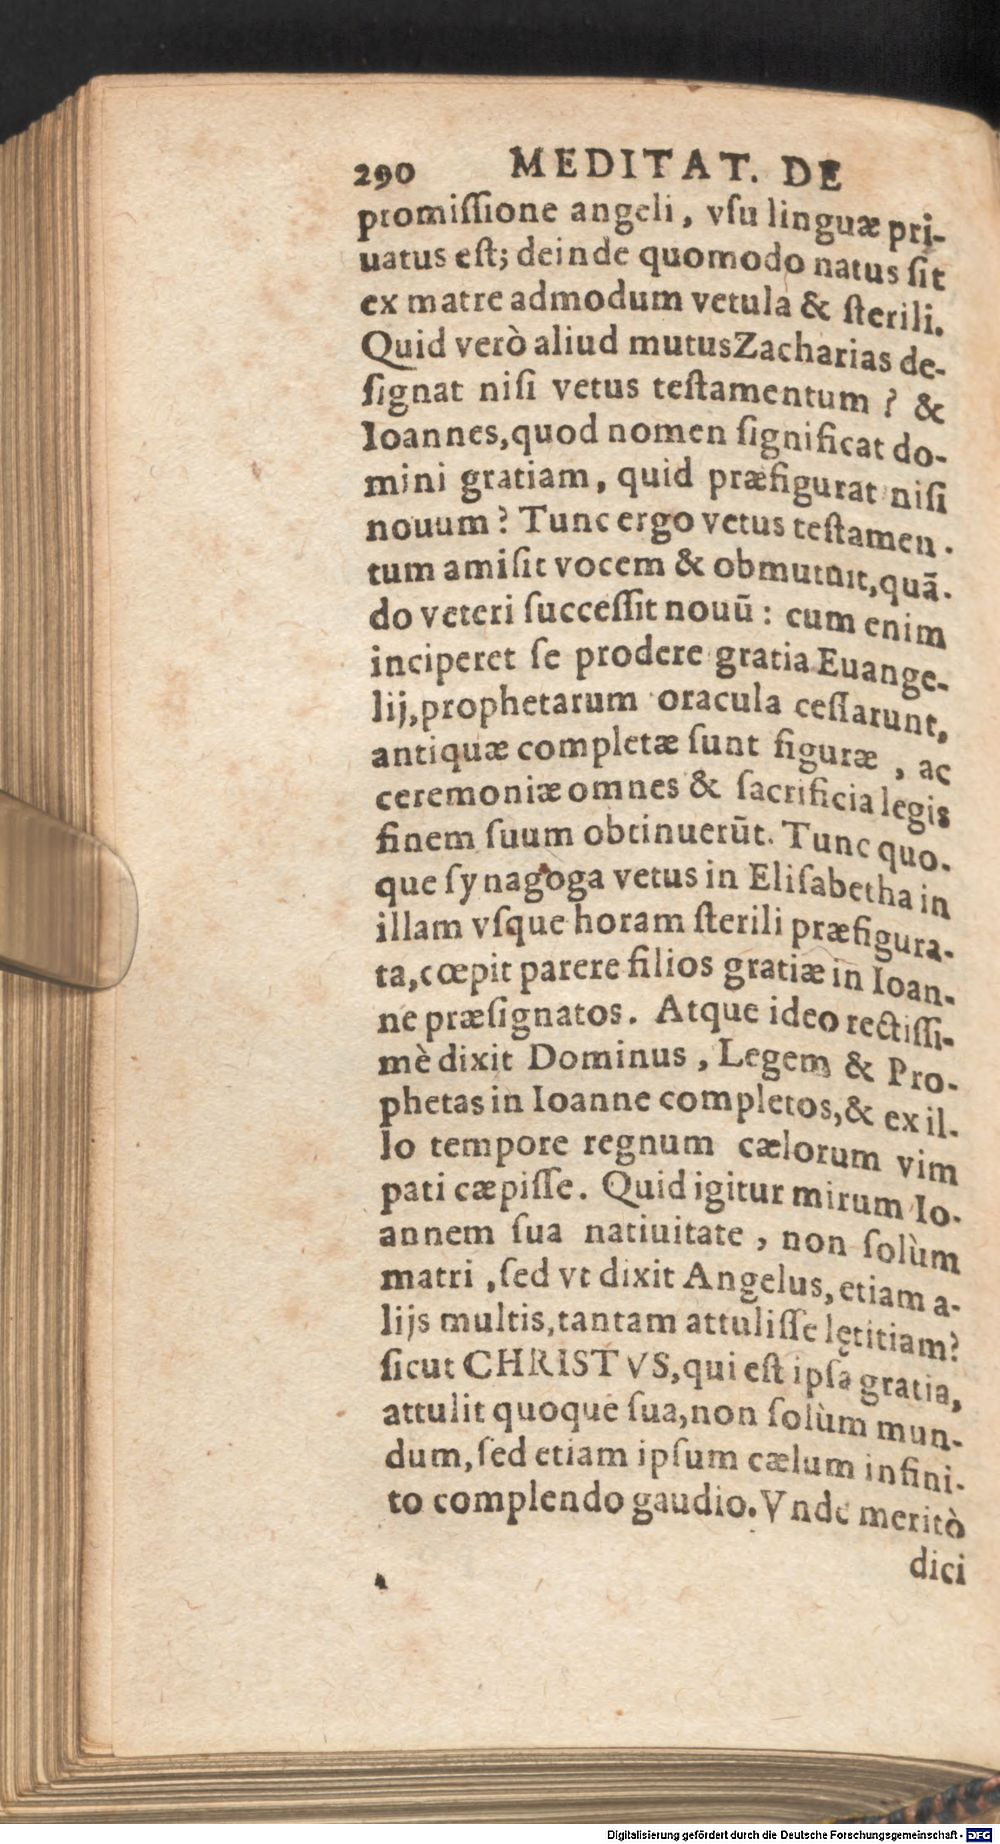 290 MEDITAT. DE
promiſſione angeli, vſu linguæ pri-
uatus eſt; deinde quomodo natus ſit
ex matre admodum vetula & ſterili.
Quid verò aliud mutus Zacharias de-
ſignat niſi vetus teſtamentum? &
Ioannes, quod nomen ſignificat do-
mini gratiam, quid præfigurat niſi
nouum? Tunc ergo vetus teſtamen-
tum amiſit vocem & obmutuit, quā-
do veteri ſucceſſit nouū: cum enim
inciperet ſe prodere gratia Euange-
lij, prophetarum oracula ceſſarunt,
antiquæ completæ ſunt figuræ, ac
ceremoniæ omnes & ſacrificia legis
finem ſuum obtinuerūt. Tunc quo-
que ſynagoga vetus in Eliſabetha in
illam vſque horam ſterili præfigura-
ta, cœpit parere filios gratiæ in Ioan-
ne præſignatos. Atque ideo rectiſſi-
mè dixit Dominus, Legem & Pro-
phetas in Ioanne completos, & ex il-
lo tempore regnum cælorum vim
pati cæpiſſe. Quid igitur mirum Io-
annem ſua natiuitate, non ſolùm
matri, ſed vt dixit Angelus, etiam a-
lijs multis, tantam attuliſſe lętitiam?
ſicut CHRISTVS, qui eſt ipſa gratia,
attulit quoque ſua, non ſolùm mun-
dum, ſed etiam ipſum cælum infini-
to complendo gaudio. Vnde meritò
dici
Digitalisierung gefördert durch die Deutsche Forschungsgemeinschaft - DFG